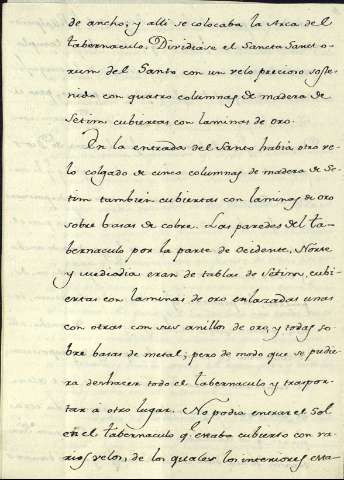 de ancho, y alli se colocaba la Arca del
tabernaculo. Dividiase el Sancta Sanct o-
rum del Santo con un velo precioso soste-
nido con quatro columnas de madera de
Setim cubiertas con laminas de oro.
En la entrada del Santo habia otro ve-
lo colgado de cinco columnas de madera de Se-
tim tambien cubiertas con laminas de oro
sobre basas de cobre. Las paredes del ta-
bernaculo por la parte de Ocidente, Norte
y mediodia eran de tablas de Setim, cubi-
ertas con laminas de oro enlazadas unas
con otras con sus anillos de oro, y todas so-
bre basas de metal; pero de modo que se pudie-
ra deshacer todo el tabernaculo y traspor-
tar à otro lugar. No podia entrar el Sol
en el tabernaculo q. estaba cubierto con va-
rios velos, de los quales los interiores esta-